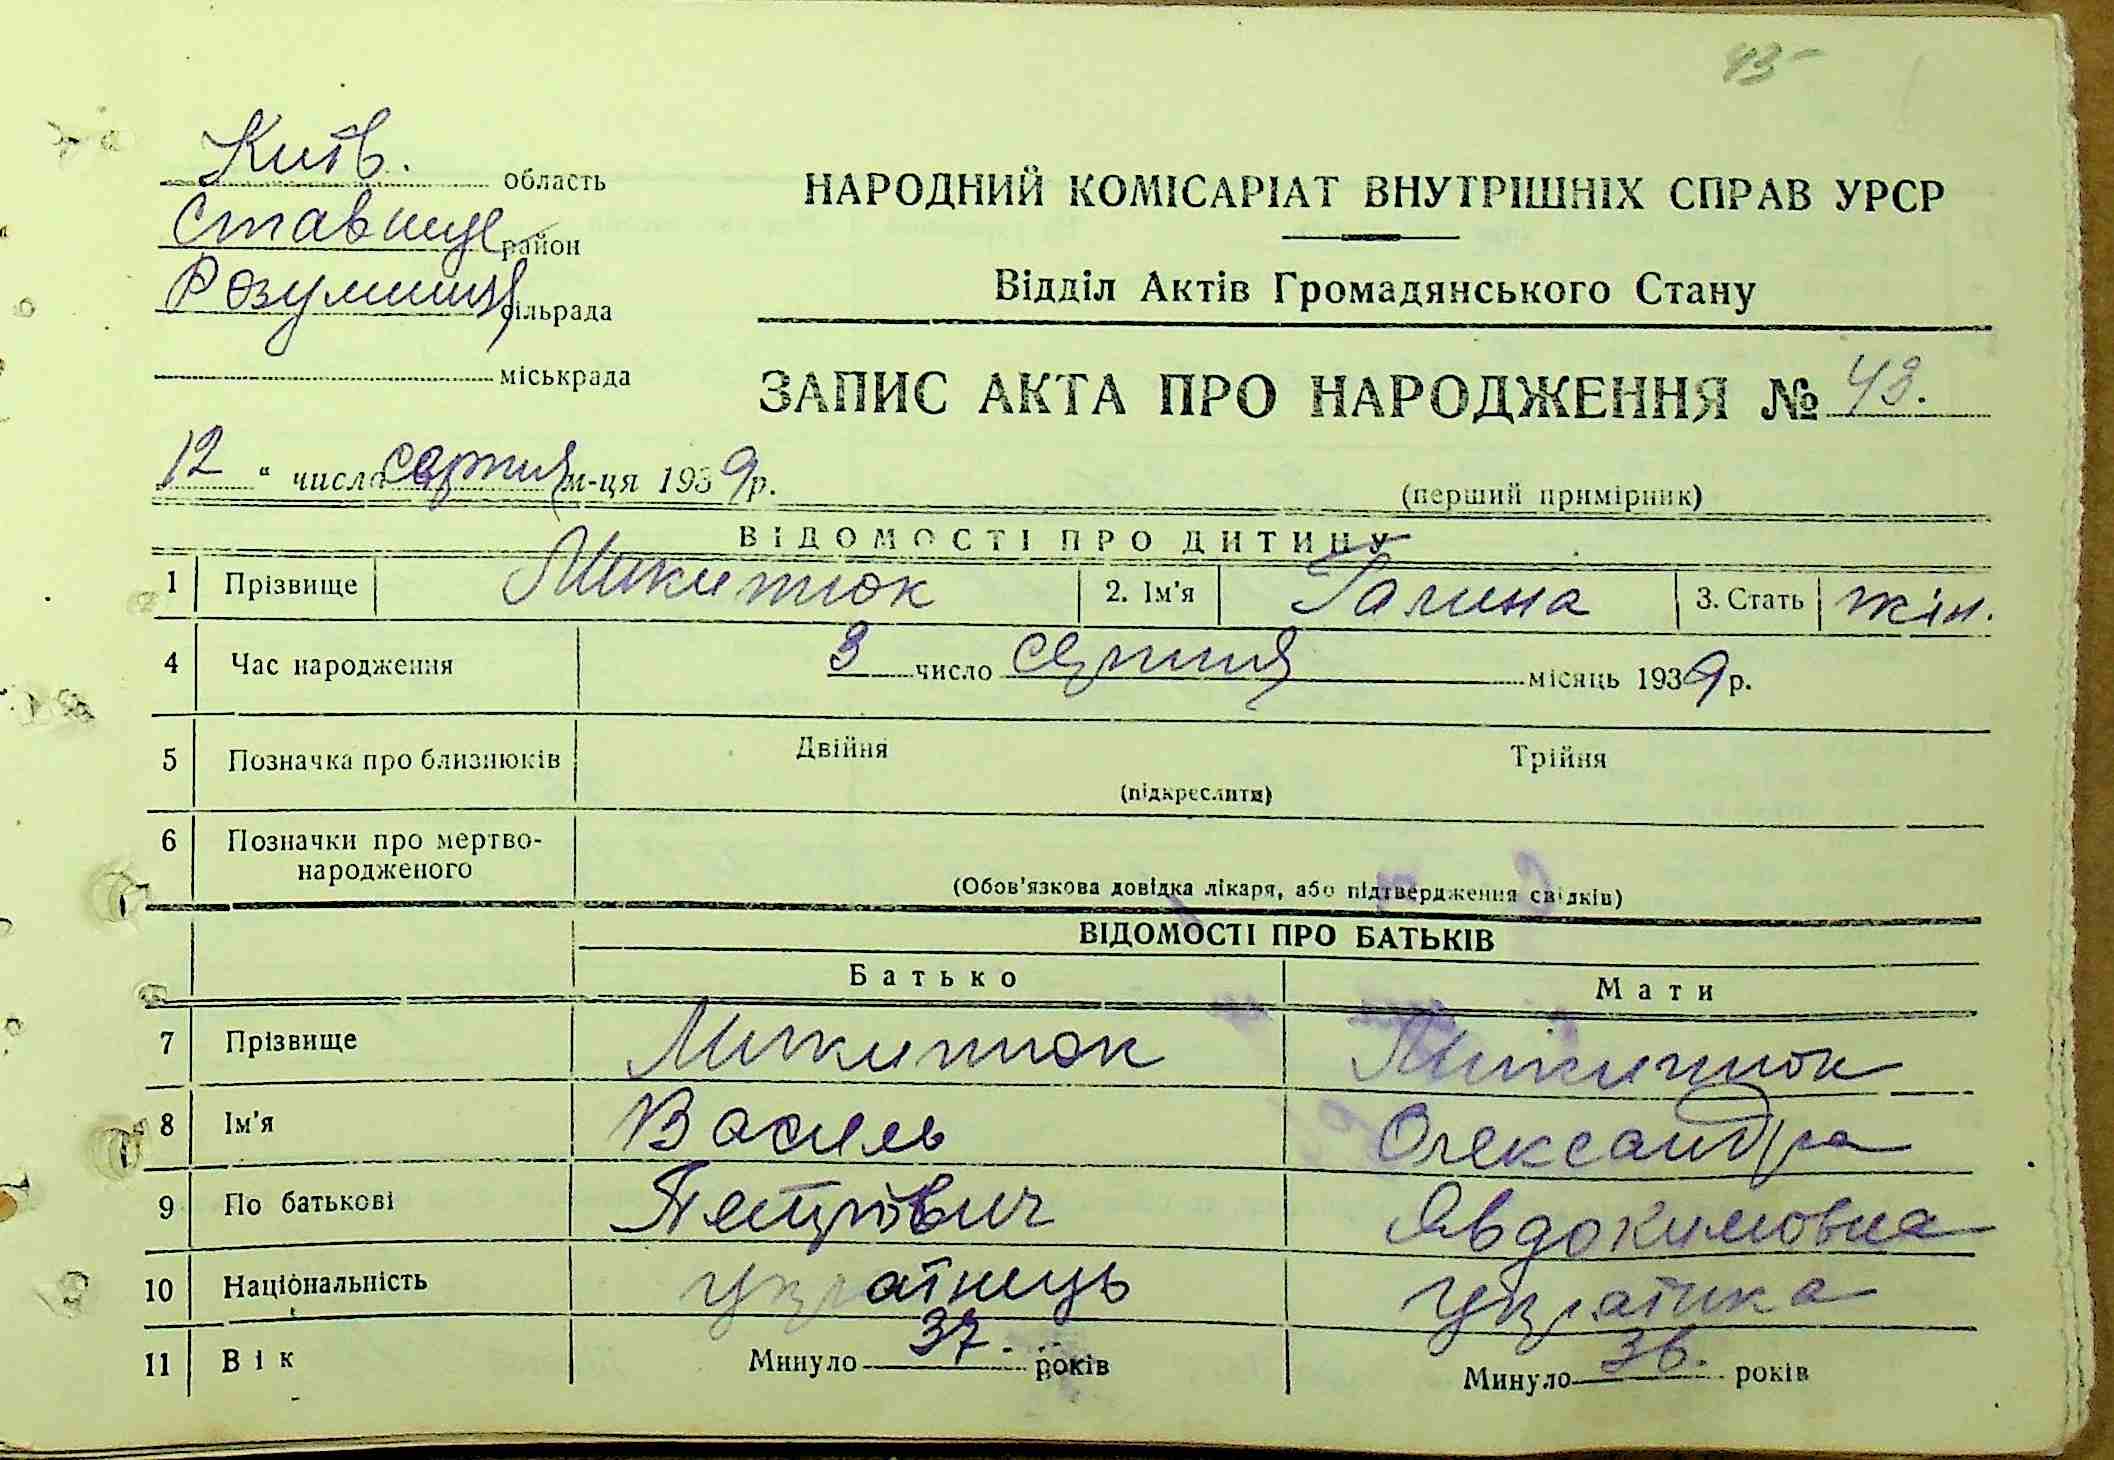 43
Київ. область
Ставище район
Розумниця сільрада
міськрада
НАРОДНИЙ КОМІСАРІАТ ВНУТРІШНІХ СПРАВ УРСР
Відділ Актів Громадянського Стану
ЗАПИС АКТА ПРО НАРОДЖЕННЯ № 43.
12 " число серпня м-ця 1939 р.
(перший примірник)
ВІДОМОСТІ ПРО ДИТИНУ
1 Прізвище Микитюк 2. Ім'я Галина 3. Стать жін.
4 Час народження 3 число серпня місяць 1939 р.
5 Позначка про близнюків Двійня Трійня
(підкреслити)
6 Позначки про мертво-
народженого
(Обов'язкова довідка лікаря, або підтвердження свідків)
ВІДОМОСТІ ПРО БАТЬКІВ
Батько Мати
7 Прізвище Микитюк Микитюк
8 Ім'я Василь Олександра
9 По батькові Петрович Явдокимовна
10 Національність українець українка
11 Вік Минуло 37. років Минуло 36. років